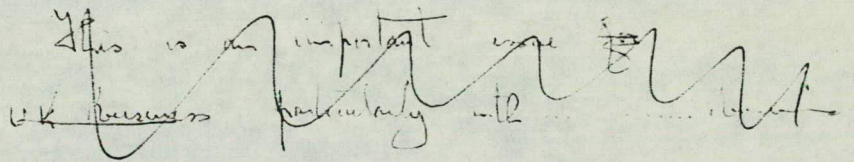 This is an important issue
UK business particularly with